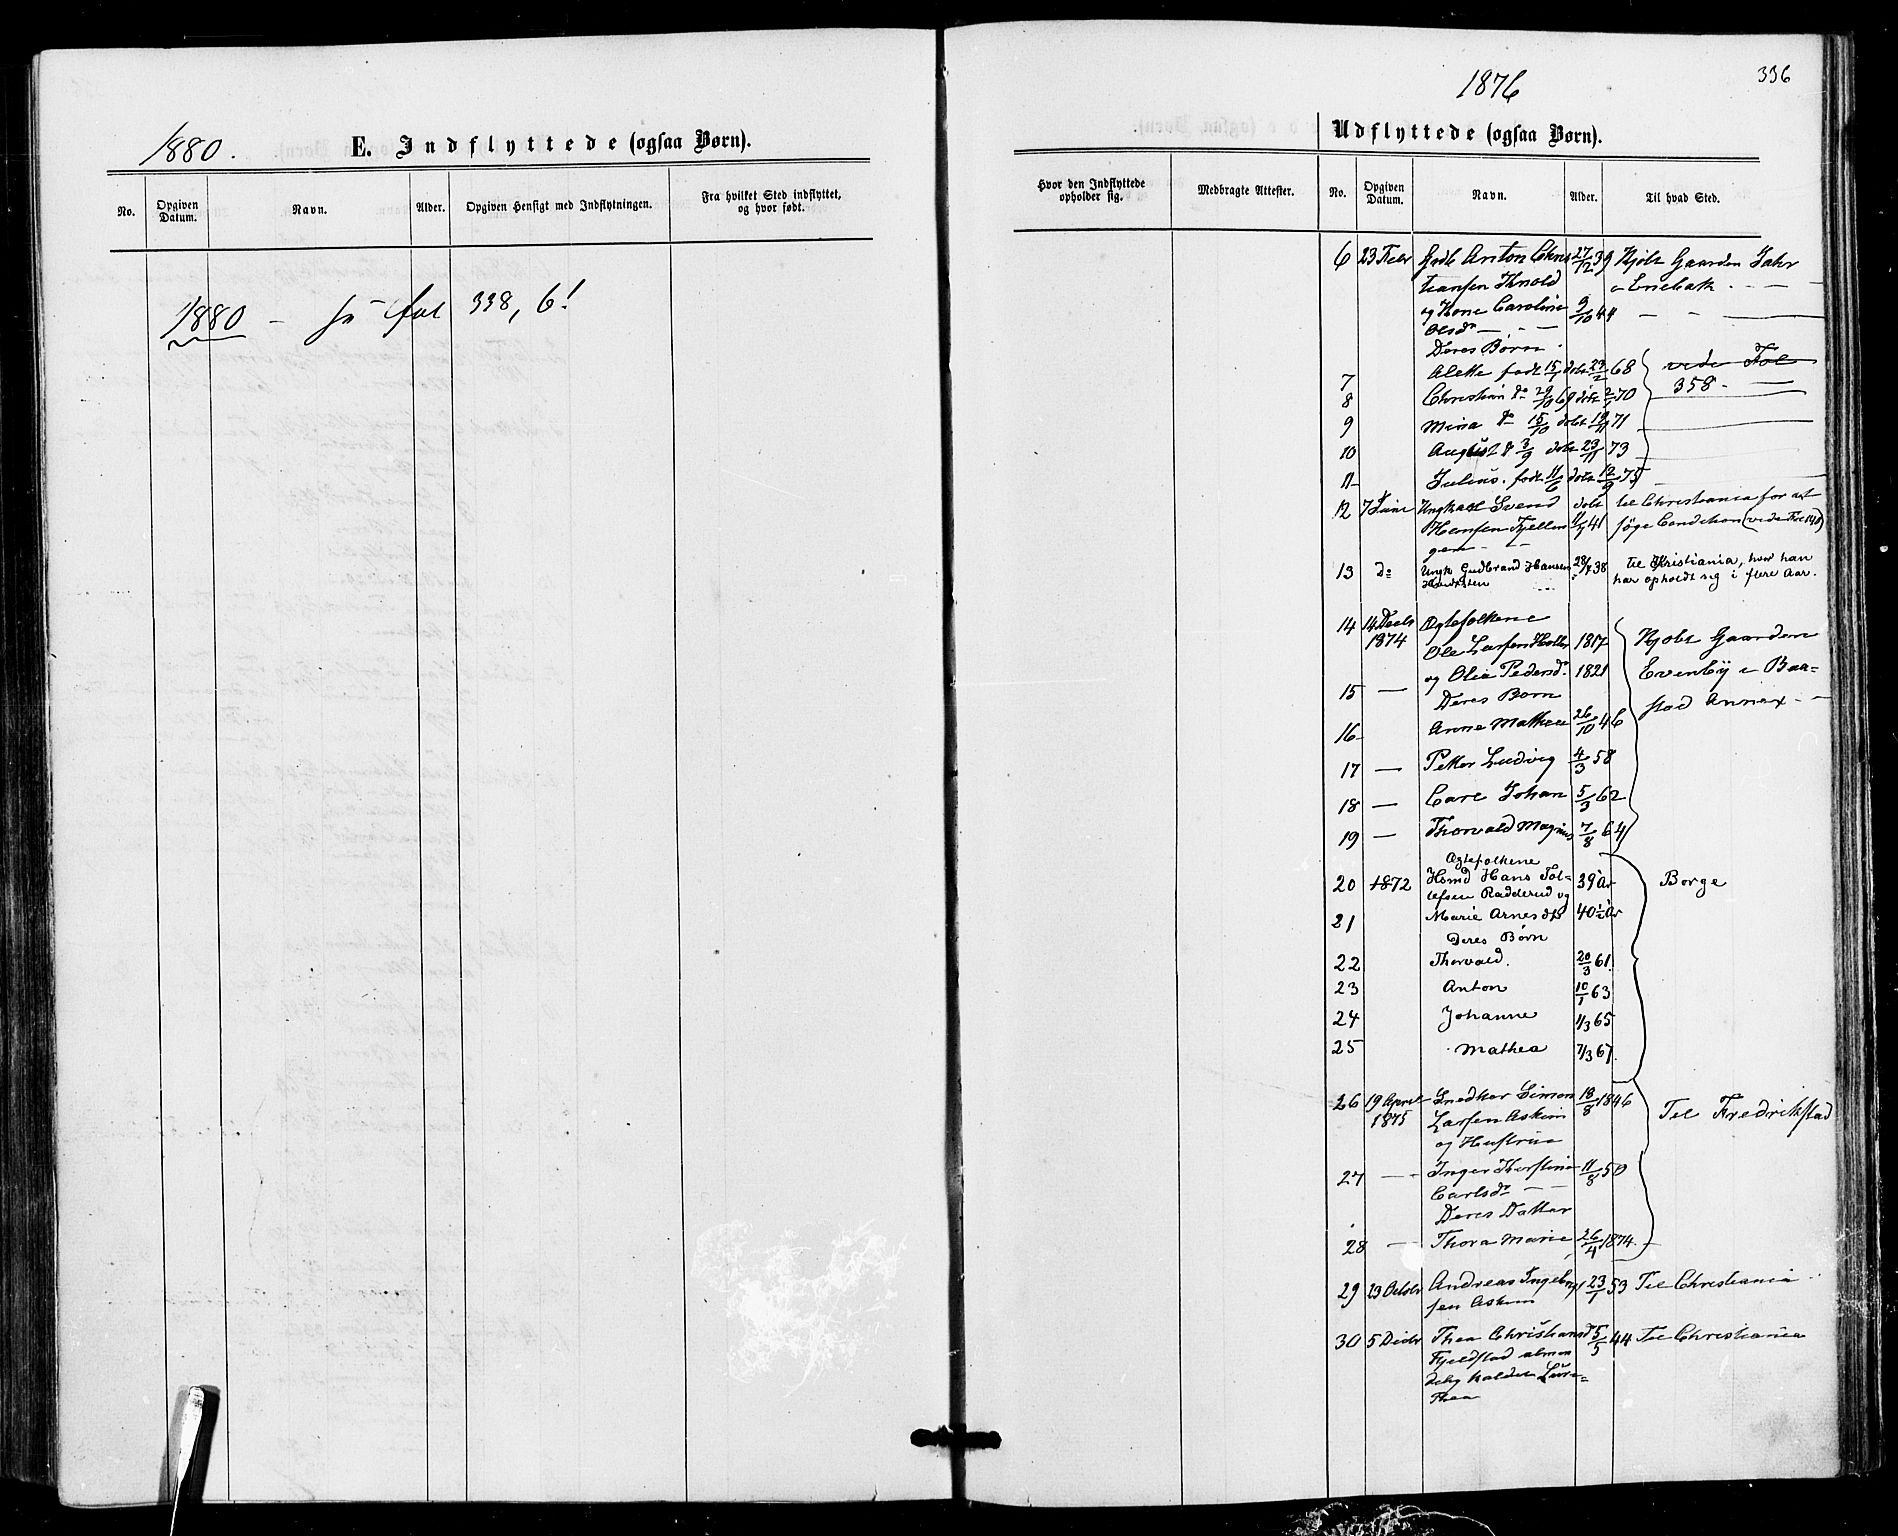 1880.
E. Indflyttede (ogsaa Børn).
No.
Opgiven Datum.
Navn.
Alder.
Opgiven Hensigt med Indflytningen.
Fra hvilket Sted indflyttet, og hvor født.
1880 - se fol 338, 6!
336
1876
Udflyttede (ogsaa Børn).
Hvor den Indflyttede opholder sig.
Medbragte Attester.
No.
Opgiven Datum.
Navn.
Alder.
Til hvad Sted.
6 23 Febr Anton Chris 27/12 39 Kjøbt Gaarden
tiansen
og Kone Caroline 9/10 44
Olsdr
Deres Børn
7 Alette født 15/1 døbt 23/2 68 vide Fol
8 Christian do 29/10 69 døbt 2/1 70 358
9 Mina do 15/10 døbt 19/11 71
10 August 3/9 døbt 23/11 73
11 Julius. født 11/6 døbt 12/9 75
12 7 Juni Ungkarl Svend døbt til Christiania for at
Hansen 41 søge Condition
13 do Ungk Gudbrand Hansen 28/7 38 til Kristiania, hvor han
har opholdt sig i flere Aar.
14 14 Decbr Ægtefolkene
1874 Ole Larsen 1817 Kjøbt Gaarden
15 og Olia Pedersdr. 1821 Evenby i Baa-
Deres Børn stad Annex
16 Anne Mathea 26/10 46
17 — Petter Ludvig 4/3 58
18 — Carl Johan 5/3 62
19 — Thorvald Magnus 7/8 64
Ægtefolkene
20 1872 Hsmd Hans Tol- 39 Aar Borge
lefsen Radderud og
21 Marie Arnesdtr 40½ Aar
Deres Børn
22 Thorvald. 20/3 61.
23 Anton 10/1 63
24 Johanne 1/3 65
25 Mathea 7/3 67.
26 19 April Snedker Simon 18/8 1846 Til Fredrikstad
1875 Larsen Askim
og Hustrue
27 — Inger Kirstine 11/8 50
Carlsdr
Deres Datter
28 — Thora Marie 26/4 1874
29 23 Octbr Andreas Ingebrigt 23/1 53 Til Christiania
sen Askim
30 5 Decbr Thea Christiansd 5/5 44 Til Christiania
Fjeldstad almin
delig kaldet
Thea